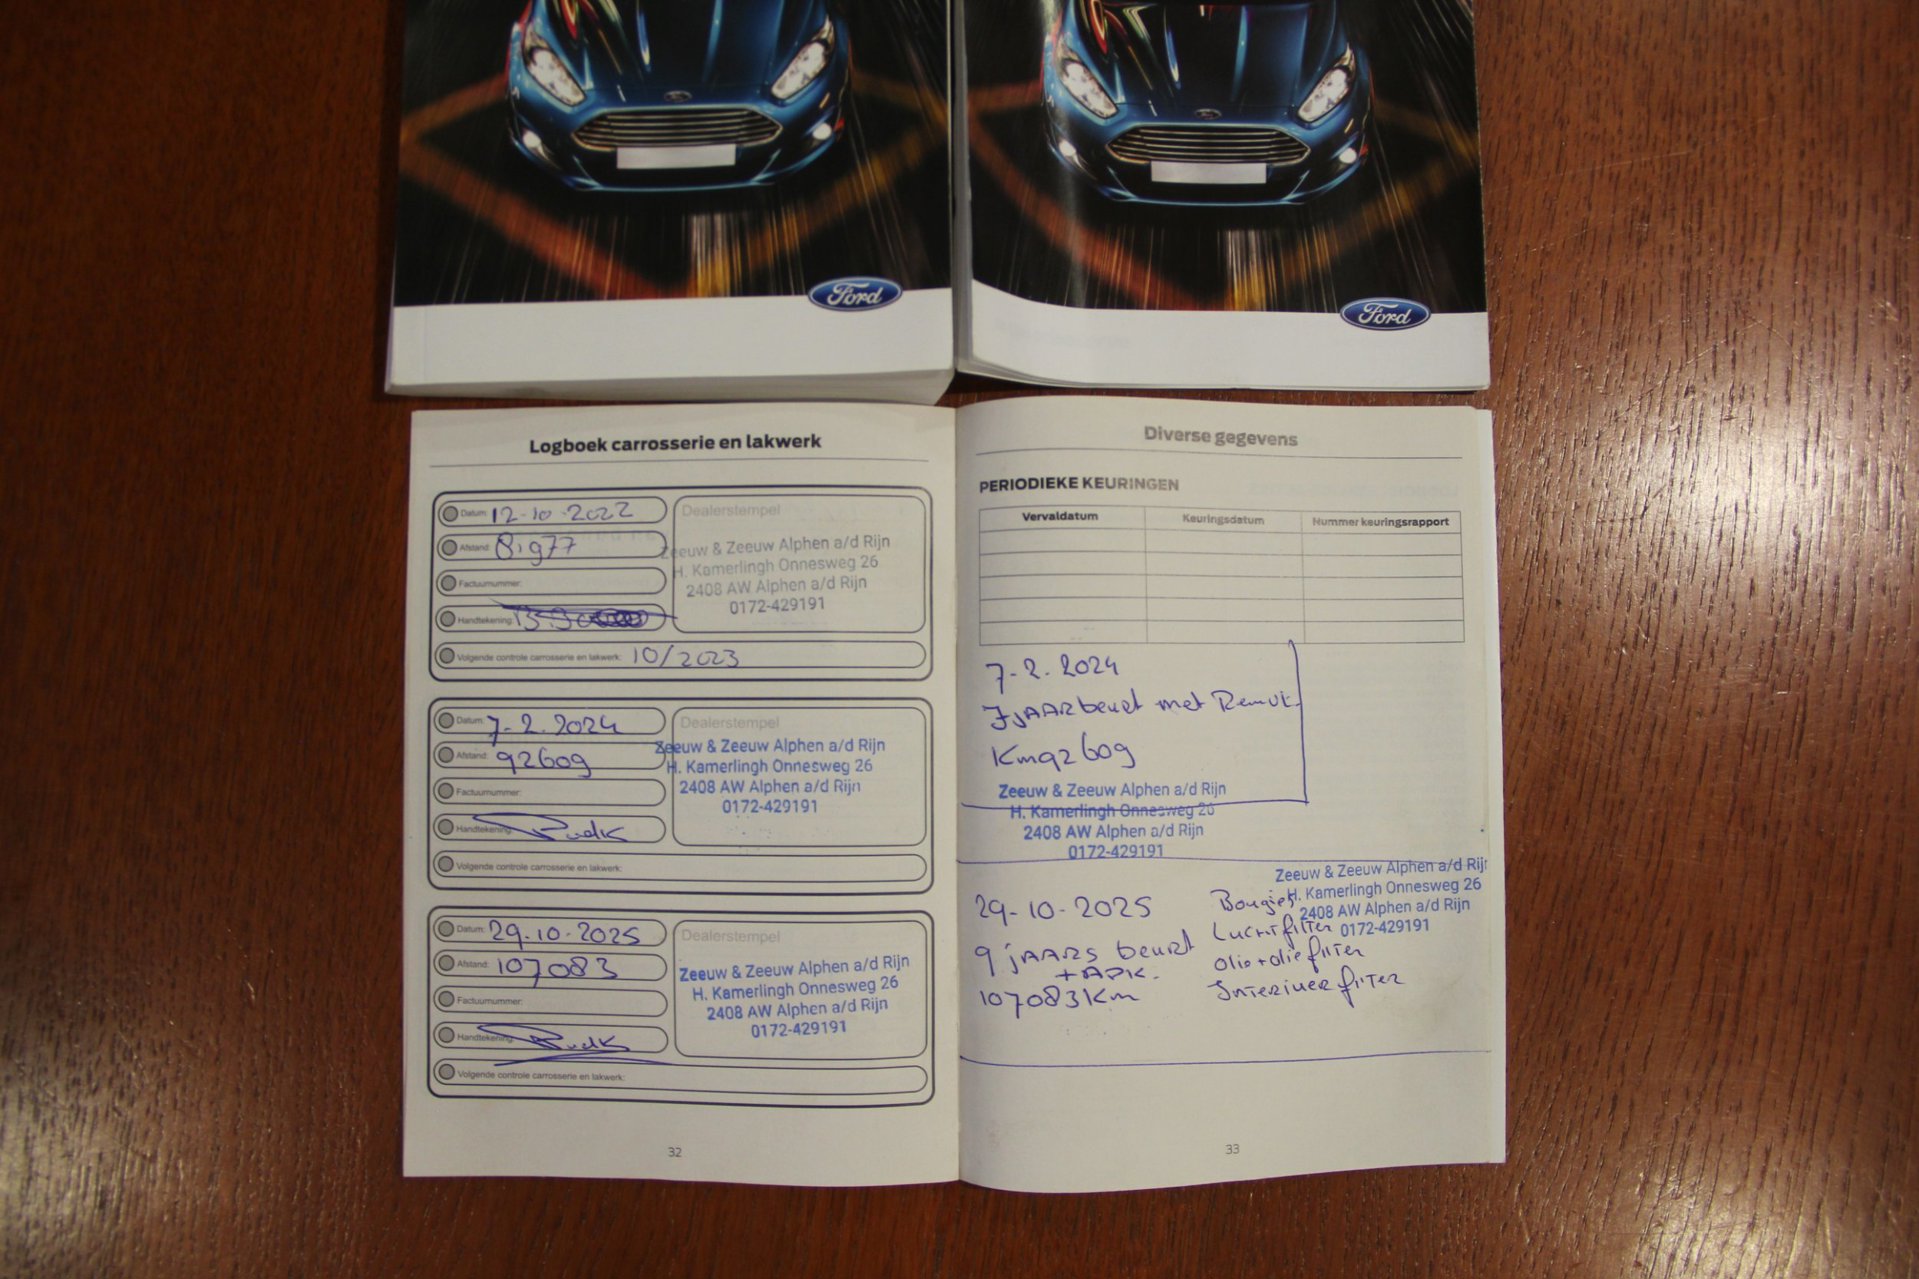 Ford
Ford
Logboek carrosserie en lakwerk
Datum: 12-10-2022
Afstand: 81977
Factuurnummer:
Handtekening:
Dealerstempel
Zeeuw & Zeeuw Alphen a/d Rijn
H. Kamerlingh Onnesweg 26
2408 AW Alphen a/d Rijn
0172-429191
Volgende controle carrosserie en lakwerk: 10/2023
Datum: 7-2.2024
Afstand: 92609
Factuurnummer:
Handtekening:
Dealerstempel
Zeeuw & Zeeuw Alphen a/d Rijn
H. Kamerlingh Onnesweg 26
2408 AW Alphen a/d Rijn
0172-429191
Volgende controle carrosserie en lakwerk:
Datum: 29-10-2025
Afstand: 107083
Factuurnummer:
Handtekening:
Dealerstempel
Zeeuw & Zeeuw Alphen a/d Rijn
H. Kamerlingh Onnesweg 26
2408 AW Alphen a/d Rijn
0172-429191
Volgende controle carrosserie en lakwerk:
32
Diverse gegevens
PERIODIEKE KEURINGEN
Vervaldatum Keuringsdatum Nummer keuringsrapport
7-2.2024
7 jAARbeurt met
Km92609
Zeeuw & Zeeuw Alphen a/d Rijn
H. Kamerlingh Onnesweg 26
2408 AW Alphen a/d Rijn
0172-429191
29-10-2025
9 jAARS beurt
+APK.
107083Km
Bougies
Luchtfilter
olie+oliefilter
Interiuerfilter
Zeeuw & Zeeuw Alphen a/d Rijn
H. Kamerlingh Onnesweg 26
2408 AW Alphen a/d Rijn
0172-429191
33